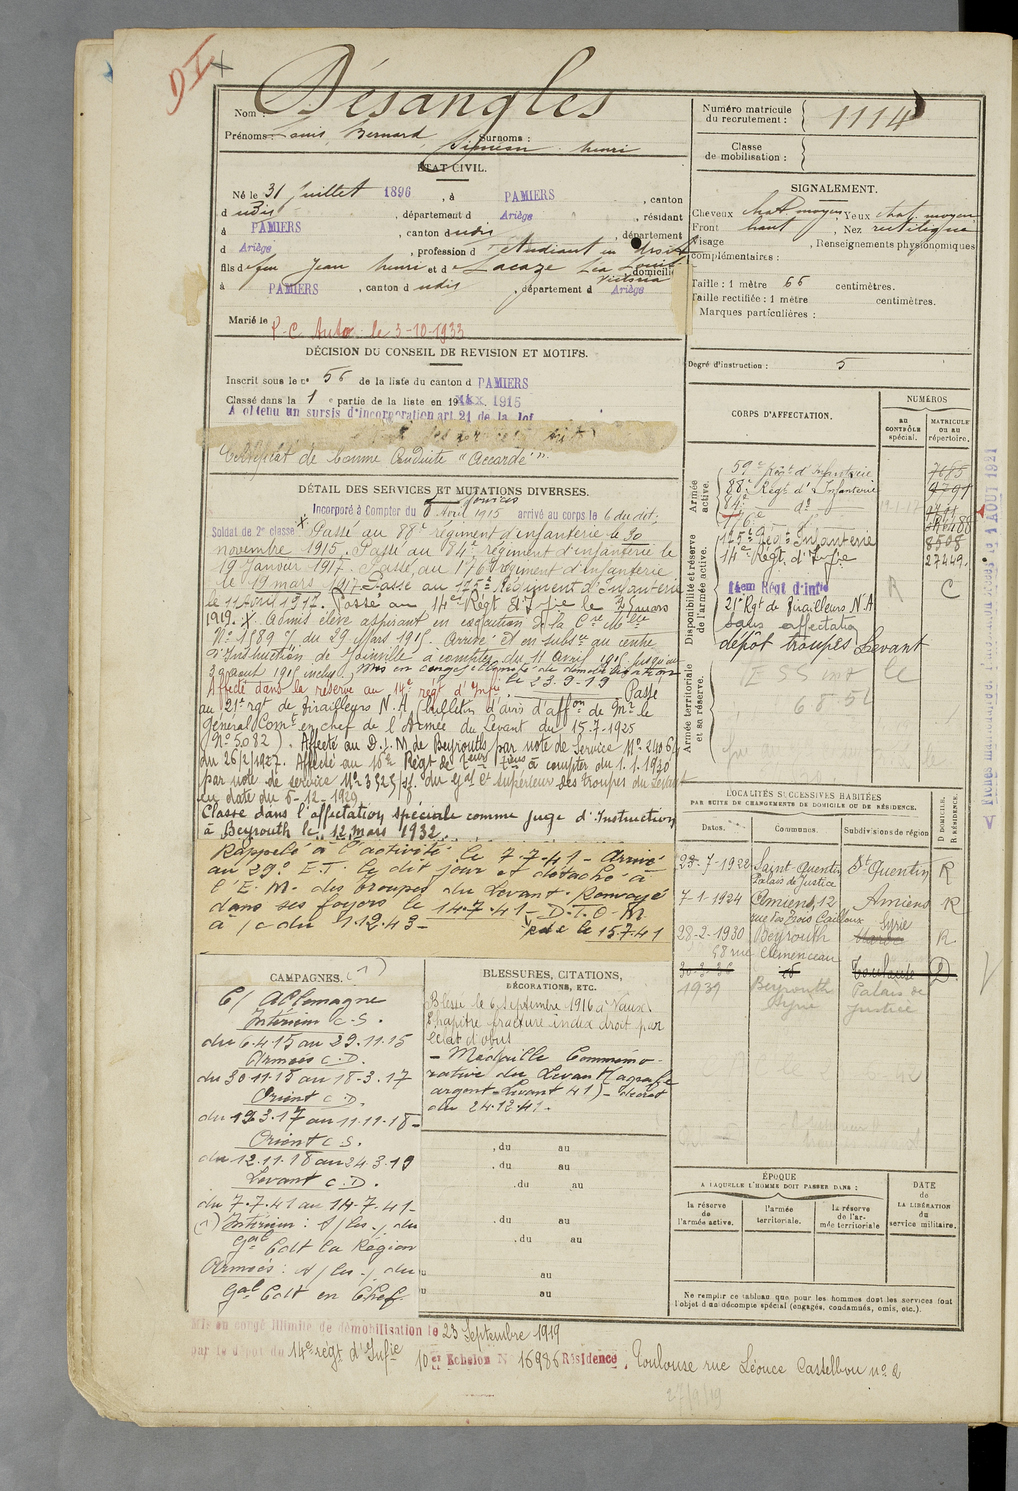 D I
Nom : Désangles
Prénoms : Louis, Bernard Surnoms :
Siméon Henri
ÉTAT CIVIL.
Né le 31 juillet 1896, à PAMIERS, canton
d udis, département d Ariège, résidant
à PAMIERS, canton d udis, département
d Ariège, profession d étudiant en droit
fils de feu Jean Henri et de Lacaze Léa Louise domiciliés
Victoria
à PAMIERS, canton d udis, département d Ariège
Marié le
P-C Auto le 3-10-1933
DÉCISION DU CONSEIL DE REVISION ET MOTIFS.
Inscrit sous le n° 56 de la liste du canton d PAMIERS
Classé dans la 1 e partie de la liste en 1915
A obtenu un sursis d'incorporation art. 21 de la loi
Certificat de bonne Conduite "Accordé".
DÉTAIL DES SERVICES ET MUTATIONS DIVERSES.
Incorporé à Compter du 6 Avril 1915 arrivé au corps le 6 du dit,
Soldat de 2e classe X Passé au 88e régiment d'infanterie le 30
novembre 1915. Passé au 84e régiment d'infanterie le
19 Janvier 1917. Passé au 176 régiment d'infanterie
le 19 mars 1917. Passé au 125e Régiment d'Infanterie
le 11 Avril 1917. Passé au 14e Régt d'Infie le
1919. X Admis élève aspirant en exécution de la Cre Mlle
No 1589 du 29 Mars 1915. Arrivé et en subsce au centre
d'Instruction de Joinville à compter du 11 Avril 1915 jusqu'au
août 1915 inclus. Mis en congé illimité de démobilisation
le 23-9-19
Affecté dans la réserve au 14e régt d'Infie. Passé
au 21e rgt de Tirailleurs N.A. (bulletin d'avis d'affon de Mr le
Général Comt en chef de l'Armée du Levant du 15-7-1925
(No 5082). Affecté au D.I.M de Beyrouth par note de Service No 2406
du 26/2/1927. Affecté au 16e Régt de Teurs Tiens à compter du 1.1.1930
par note de service No 3525/ du Gal Ct supérieur des troupes du Levant
en date du 6-12-1929
Classé dans l'affectation spéciale comme juge d'Instruction
à Beyrouth le 12 mars 1932.
Rappelé à l'activité le 7-7-41 - Arrivé
au 29e E.T. le dit jour et détaché à
l'E.M. des troupes du Levant. Renvoyé
dans ses foyers le 14.7.41 - D.T.O.M.
à /c du 1.12.43 - le 15.7.41
CAMPAGNES. (1)
C/ Allemagne
Intérieur C.S.
du 6.4.15 au 29.11.15
Armées C.D.
du 30.11.15 au 18.3.17
Orient C.D.
du 19.3.17 au 11.11.18 -
Orient C.S.
du 12.11.18 au 24.3.19
Levant C.D.
du 7.7.41 au 14.7.41 -
(1) Intérieur : du
Gal Cdt la Région
Armées : du
Gal Cdt en Chef
BLESSURES, CITATIONS,
DÉCORATIONS, ETC.
Blessé le 6 septembre 1916 à Vaux
Chapitre fracture index droit par
éclat d'obus
- Médaille Commémo-
rative du Levant (agrafe
argent - Levant 41) - décret
du 24.12.41.
, du au
, du au
, du au
, du au
, du au
au
au
Numéro matricule
du recrutement : 1114
Classe
de mobilisation :
SIGNALEMENT.
Cheveux chat moyen Yeux chat. moyen
Front haut, Nez rectiligne
Visage, Renseignements physionomiques
complémentaires :
Taille : 1 mètre 66 centimètres.
Taille rectifiée : 1 mètre centimètres.
Marques particulières :
Degré d'instruction : 5
CORPS D'AFFECTATION.
NUMÉROS
AU CONTRÔLE spécial.
MATRICULE OU AU répertoire.
Armée active.
59e Régt d'Infanterie 7065
88e Régt d'Infanterie 9791
84e do
176e do
125e Régt Infanterie 8508
Disponibilité et réserve de l'armée active.
14e Régt d'Infie 27449.
14em Régt d'infie R C
21e Rgt de Tirailleurs N.A
Sans affectation
dépôt troupes Levant
Armée territoriale et sa réserve.
LOCALITÉS SUCCESSIVES HABITÉES
PAR SUITE DE CHANGEMENTS DE DOMICILE OU DE RÉSIDENCE.
Dates. Communes. Subdivisions de région D DOMICILE. R RÉSIDENCE.
27-7-1922 Saint-Quentin St Quentin R
Palais de Justice
7-1-1924 Amiens, 12 Amiens R
rue des Trois Cailloux
28-2-1930 Beyrouth Syrie Maroc R
58 rue Clemenceau
Toulouse D
1939 Beyrouth Palais de
Syrie Justice
ÉPOQUE
A LAQUELLE L'HOMME DOIT PASSER DANS :
la réserve de l'armée active.
l'armée territoriale.
la réserve de l'armée territoriale
DATE de LA LIBÉRATION du service militaire.
Ne remplir ce tableau que pour les hommes dont les services font
l'objet d'un décompte spécial (engagés, condamnés, omis, etc.).
Mis en congé illimité de démobilisation le 23 Septembre 1919
par le dépôt du 14e régt d'Infie 10e Echelon No 16986 Résidence, Toulouse rue Léonce Castelbou no 2
27/9/19